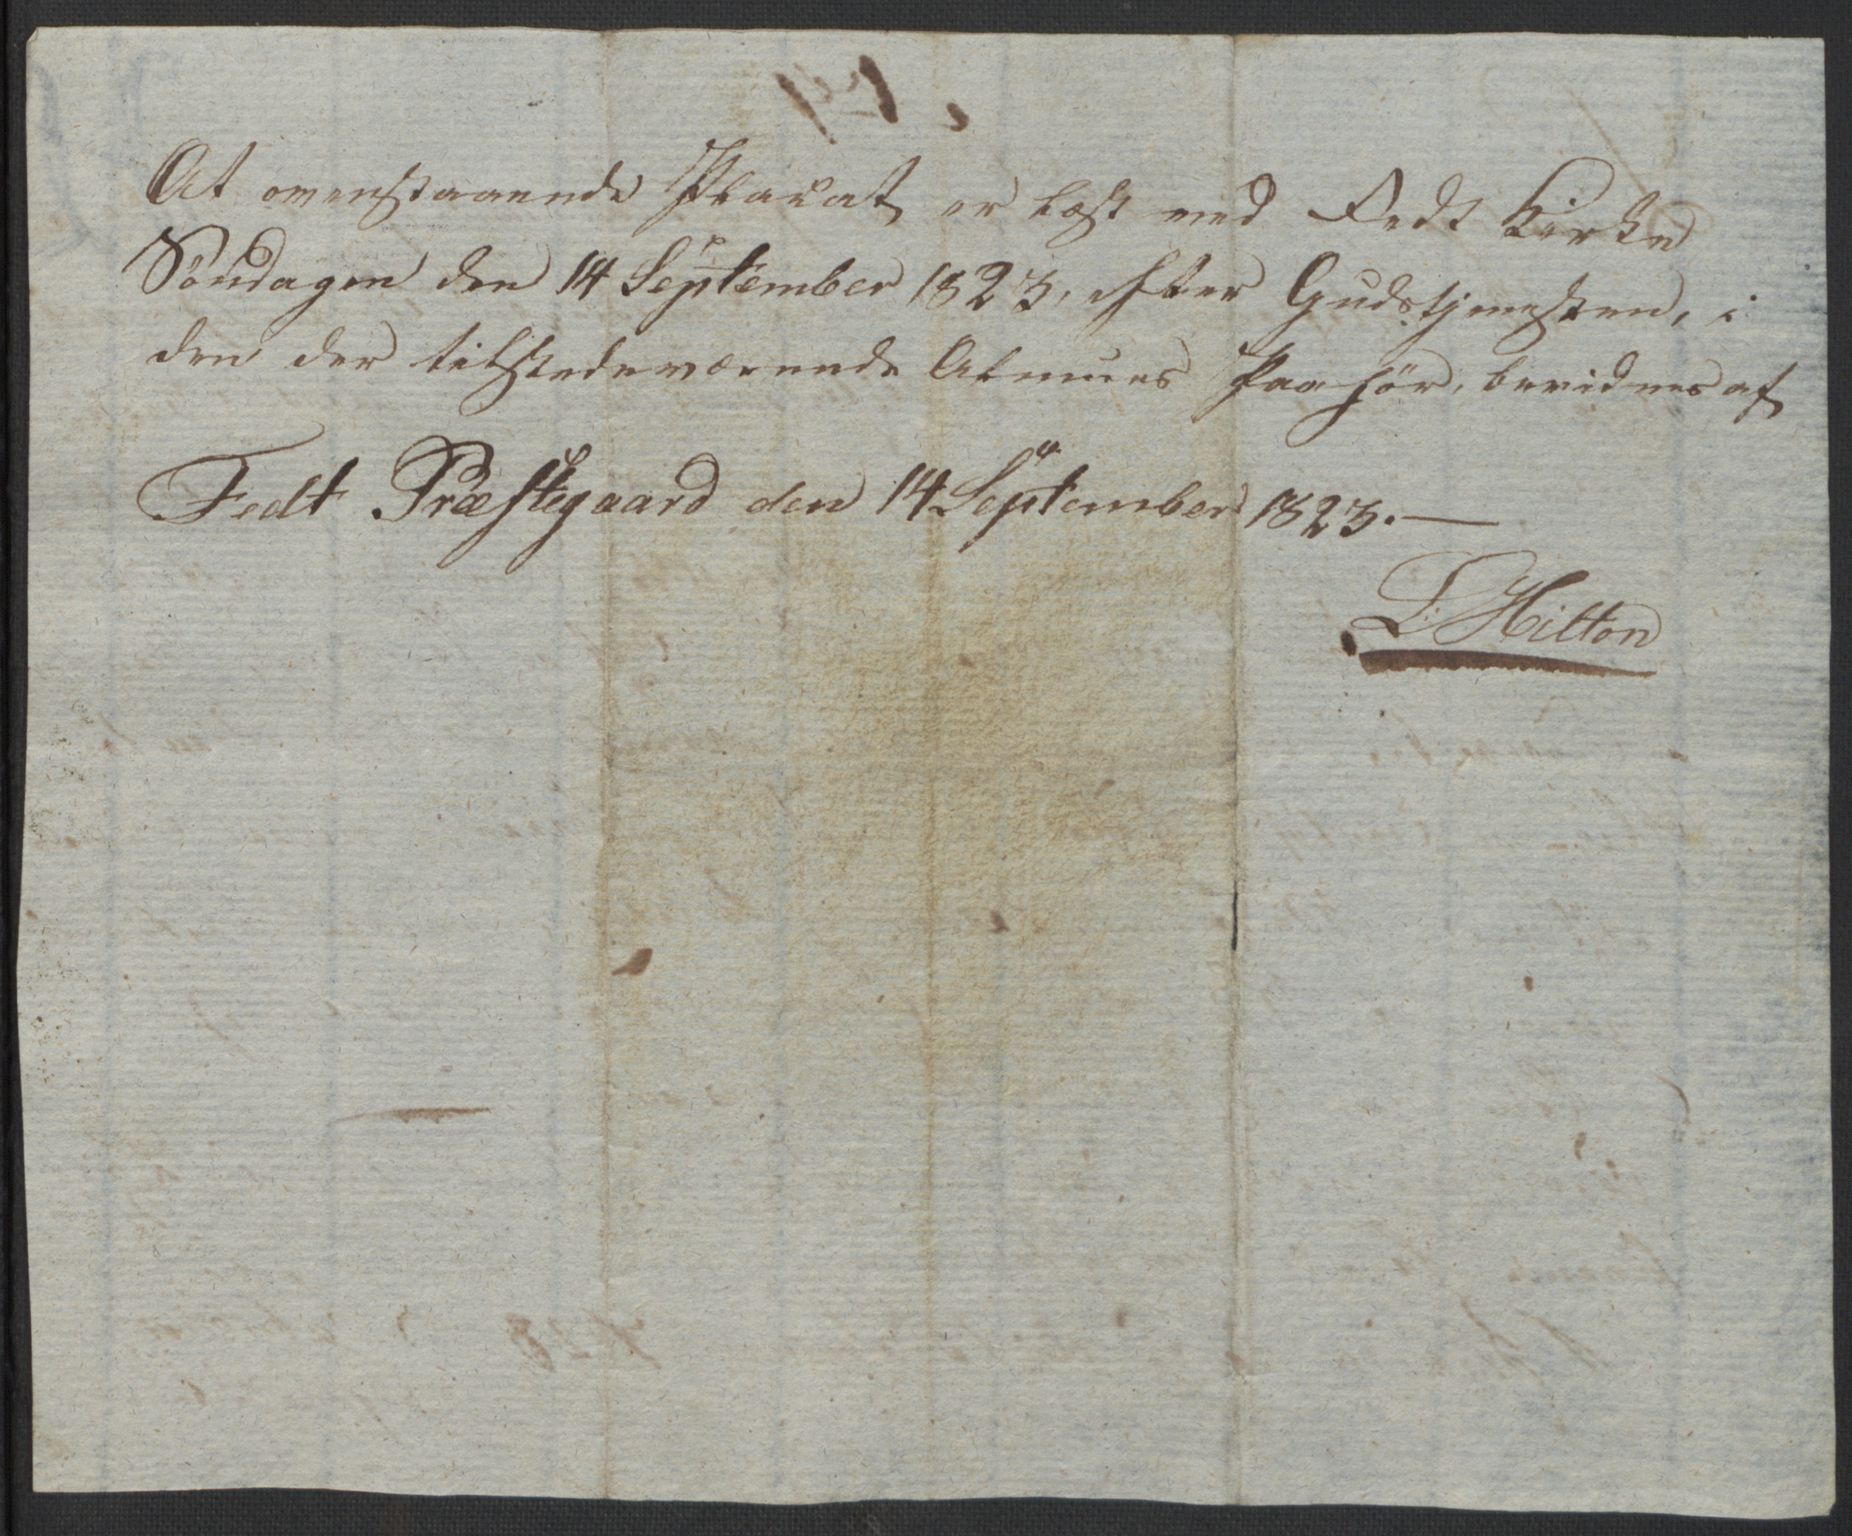 At ovenstaaende Placat er læst ved Fedt Kirke
Söndagen den 14 September 1823, efter Gudstjenesten, i
den der tilstedeværende Almues Paahör, bevidnes af
Fedt Præstegaard den 14 September 1823.—
L: Hilton